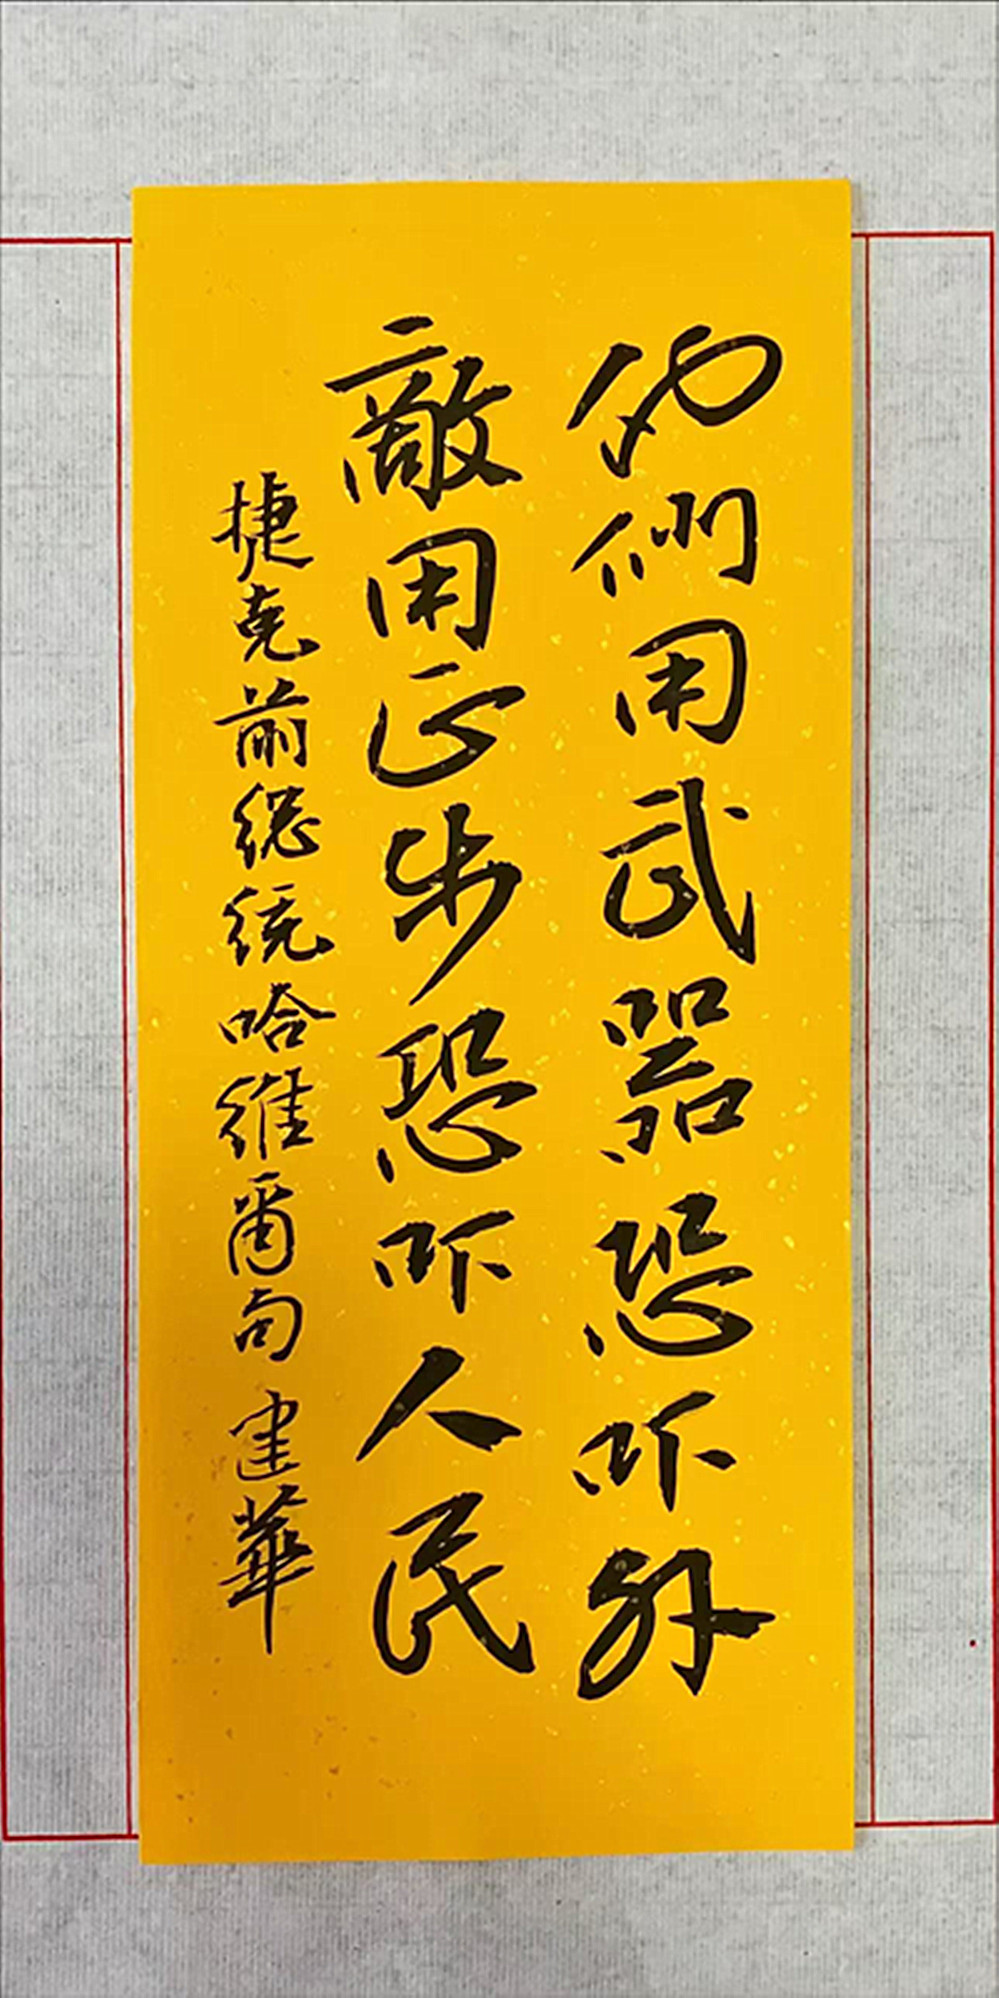 他們用武器恐吓外
敵用正步恐吓人民
捷克前總統哈維爾句 建華